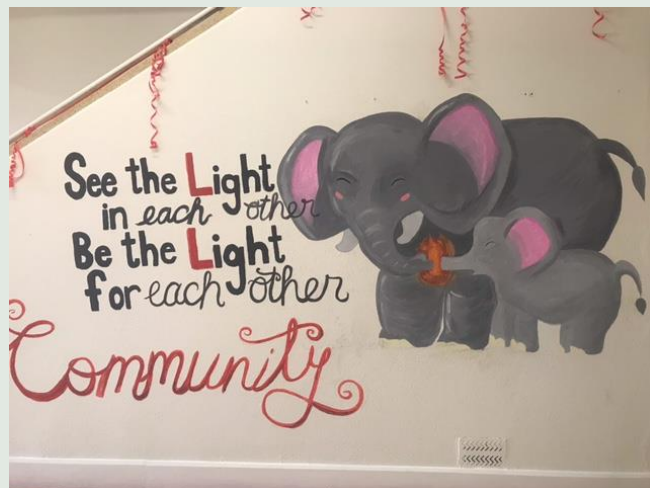 See the Light
in each other
Be the Light
for each other
Community